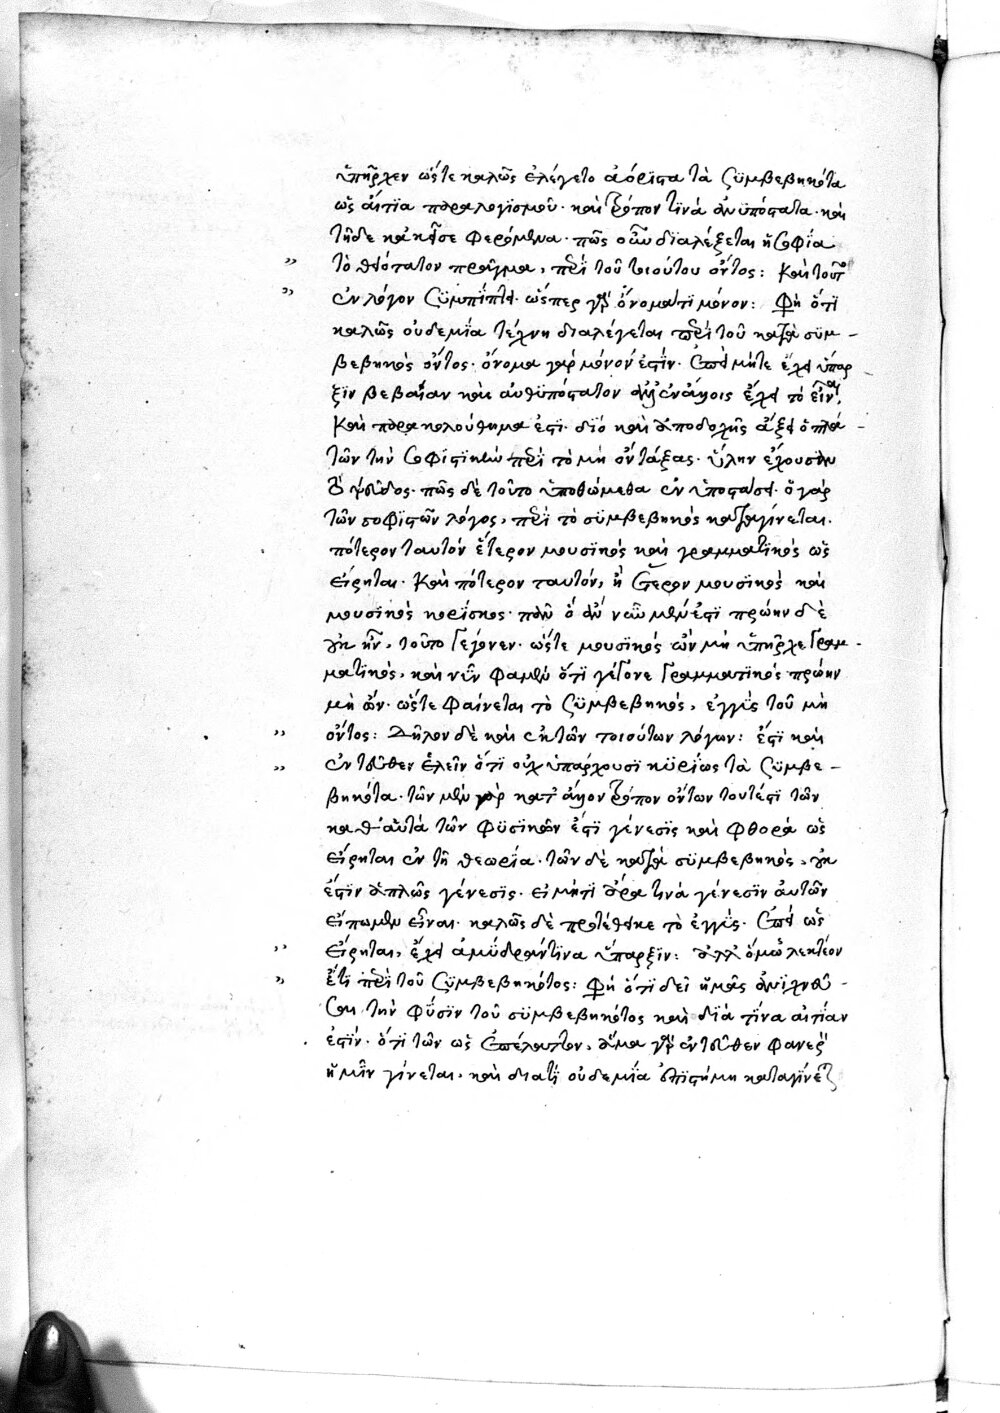 ὑπῆρχεν ὥστε καλῶς ἐλέγετο ἀόριστα τὰ συμβεβηκότα
ὡς αἴτια παραλογισμοῦ· καὶ τρόπον τινὰ ἀνυπόστατα· καὶ
τῇδε κἀκεῖσε φερόμενα· πῶς οὖν διαλέξεται ἡ σοφία
τὸ θειότατον πρᾶγμα, περὶ τοῦ τοιούτου ὄντος: Καὶ τοῦτο
ἐν λόγον συμπίπτει· ὥσπερ γὰρ ὀνοματι μόνον: Φη ὅτι
καλῶς οὐδεμία τέχνη διαλέγεται περὶ τοῦ κατὰ συμ-
βεβηκὸς ὄντος· ὄνομα γὰρ μόνον ἐστίν· ἐπεὶ μήτε ἔχει ὕπαρ-
ξιν βεβαίαν καὶ αὐθυπόστατον ἀλλ' ἐν ἄλλοις ἔχει τὸ εἶναι,
Καὶ παρακολούθημα ἐστι· διὸ καὶ ἀποδοχῆς ἄξιος ὁ πλά-
των τὴν σοφιστικὴν περὶ τὸ μὴ ὂν τάξας· ὕλην ἔχουσαν
τὸ ψεῦδος· πῶς δὲ τοῦτο ὑποθώμεθα ἐν ὑποστάσει· ὁ γὰρ
τῶν σοφιστῶν λόγος, περὶ τὸ συμβεβηκὸς καταγίνεται·
πότερον ταυτὸν ἕτερον μουσικὸς καὶ γραμματικὸς ὡς
εἴρηται· Καὶ πότερον ταυτόν, ἢ ἕτερον μουσικὸς καὶ
μουσικὸς κορίσκος· πᾶν ὃ ἂν νῦν μέν ἐστι πρώην δὲ
οὐκ ἦν, τοῦτο γέγονεν· ὥστε μουσικὸς ὢν μὴ ὑπῆρχε γραμ-
ματικὸς, καὶ νῦν φαμὲν ὅτι γέγονε γραμματικὸς πρώην
μὴ ὤν· ὥστε φαίνεται τὸ συμβεβηκὸς, ἐγγὺς τοῦ μὴ
ὄντος: Δῆλον δὲ καὶ ἐκ τῶν τοιούτων λόγων: ἔστι καὶ
ἐντεῦθεν ἑλεῖν ὅτι οὐχ ὑπάρχουσι κυρίως τὰ συμβε-
βηκότα· τῶν μὲν γὰρ κατ' ἄλλον τρόπον ὄντων τουτέστι τῶν
καθ' αὑτὰ τῶν φυσικῶν ἐστι γένεσις καὶ φθορὰ ὡς
εἴρηται ἐν τῇ θεωρίᾳ· τῶν δὲ κατὰ συμβεβηκὸς, οὐκ
ἔστιν ἁπλῶς γένεσις· εἰ μήτι ἄρα τινὰ γένεσιν αὐτῶν
εἴπωμεν εἶναι· καλῶς δὲ προτέθεικε τὸ ἐγγὺς· ἐπεὶ ὡς
εἴρηται, ἔχει ἀμυδράν τινα ὕπαρξιν: ἀλλ' ὅμως λεκτέον
ἔτι περὶ τοῦ συμβεβηκότος: Φη ὅτι δεῖ ἡμᾶς ἀνιχνεῦ-
σαι τὴν φύσιν τοῦ συμβεβηκότος καὶ διὰ τίνα αἰτίαν
ἐστίν· ὅτι τῶν ὡς ἐπέλαττον, ἅμα γὰρ ἐντεῦθεν φανερὸν
ἡμῖν γίνεται, καὶ διατί οὐδεμία ἐπιστήμη καταγίνεται